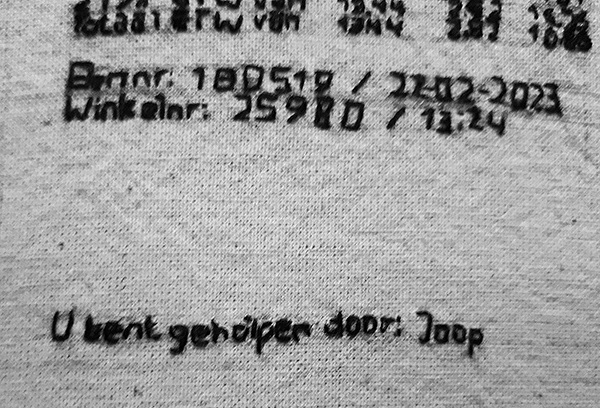 Totaal BTW van 13.44
Bonnr: 180519 / 22-02-2023
Winkelnr: 25980 / 13:24
U bent geholpen door: Joop